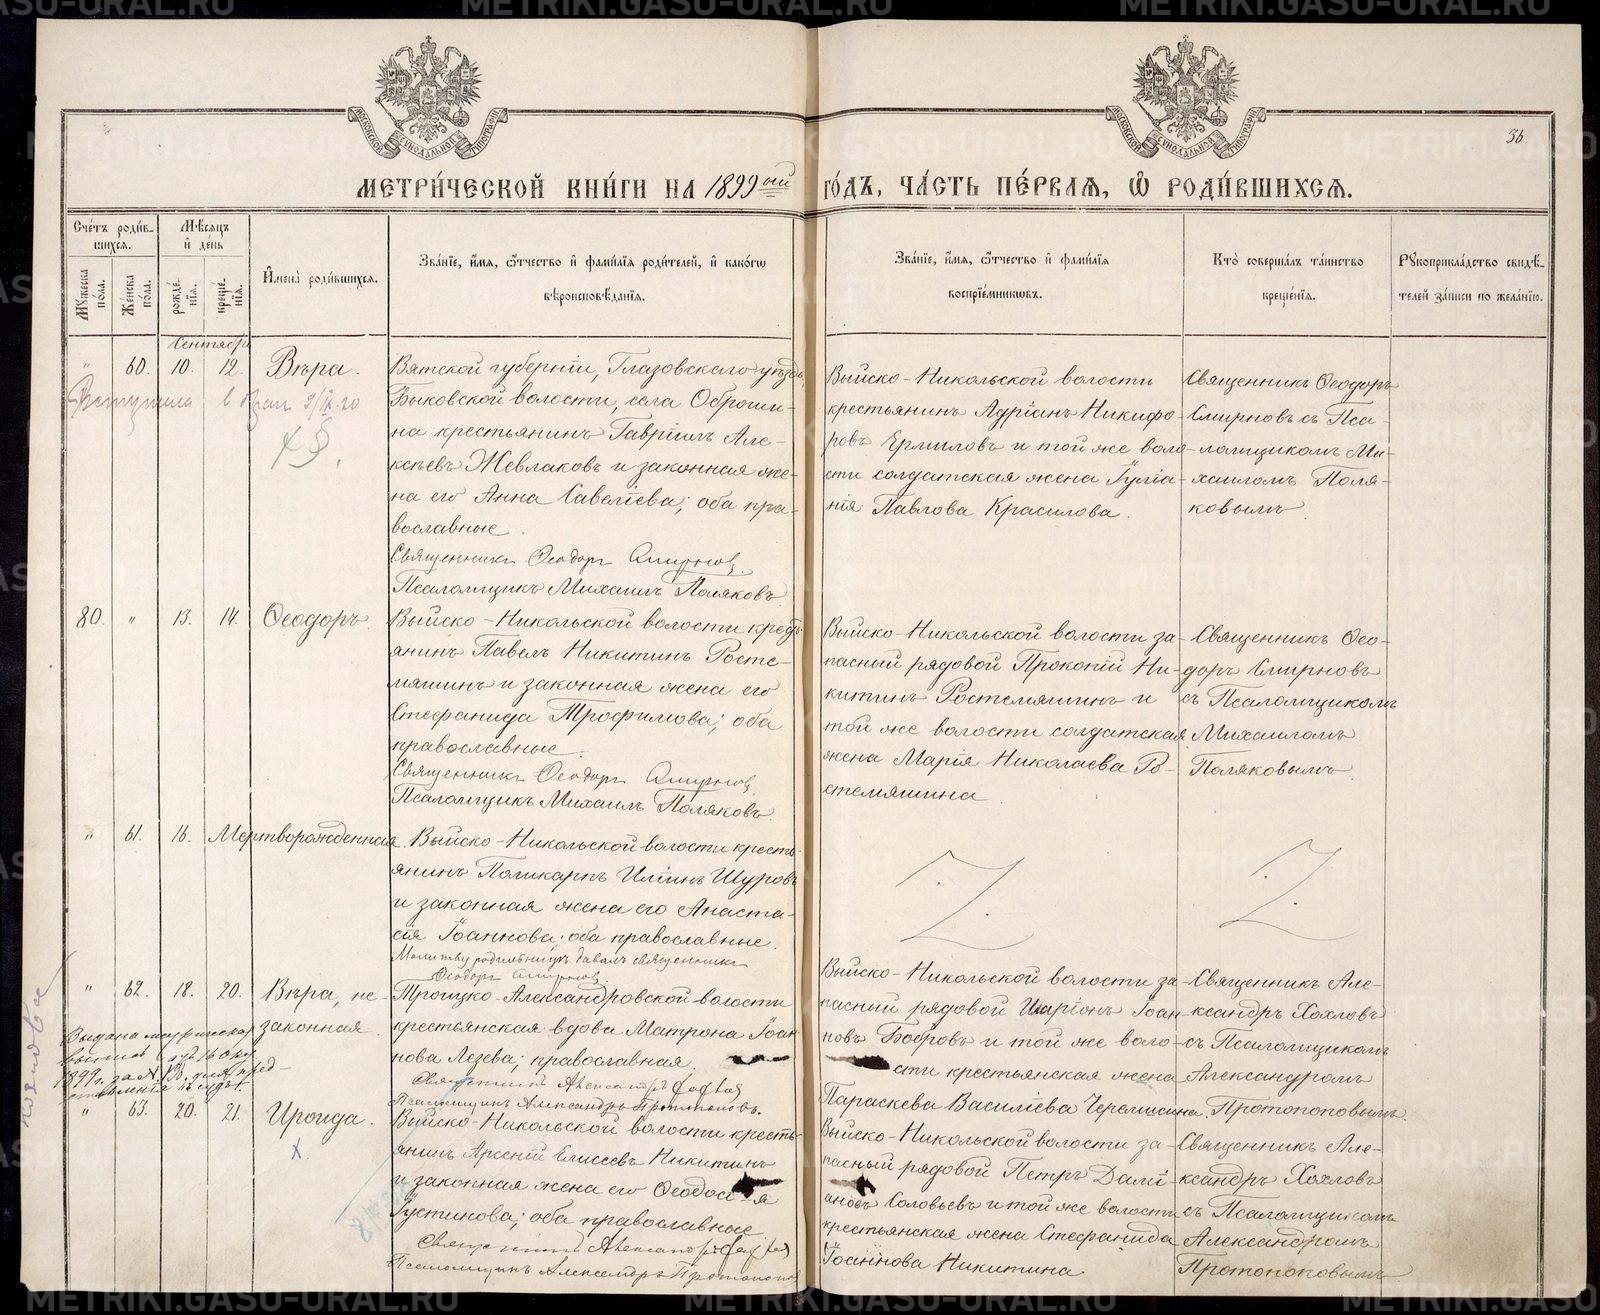 МЕТРИ́ЧЕСКОЙ КНИ́ГИ НА 1899ый ГО́ДЪ, ЧА́СТЬ ПЕ́РВАѦ, Ѡ РОДИ́ВШИХСѦ.
36
МОСКОВСКОЙ СѴНОДАЛЬНОЙ ТИПОГРАФІИ
МОСКОВСКОЙ СѴНОДАЛЬНОЙ ТИПОГРАФІИ
Сче́тъ роди́в-
шихсѧ.
Мꙋ́жеска по́ла.
Же́нска по́ла.
Мѣ́сѧцъ и҆ де́нь
рожде́-
нїѧ.
креще́-
нїѧ.
И҆мена̀ роди́вшихсѧ.
Зва́нїе, и҆́мѧ, ѻ҆́тчество и҆ фами́лїѧ роди́телей, и҆ како́гѡ
вѣроисповѣ́данїѧ.
Зва́нїе, и҆́мѧ, ѻ҆́тчество и҆ фами́лїѧ
воспрїе́мникѡвъ.
Кто̀ соверша́лъ та́инство
креще́нїѧ.
Рꙋкоприкла́дство свидѣ́-
телей за́писи по жела́нїю.
Сентябрь
" 60. 10. 12. Вѣра.
Вятской губерніи, Глазовскаго уѣзда,
Быковской волости, села Оброши-
на крестьянинъ Гавріилъ Але-
ксѣевъ Жевлаковъ и законная же-
на его Анна Савеліева; оба пра-
вославные.
Священникъ Ѳеодоръ Смирновъ
Псаломщикъ Михаилъ Поляковъ.
Выйско-Никольской волости
крестьянинъ Адріанъ Никифо-
ровъ Ермиловъ и той же воло-
сти солдатская жена Іуліа-
нія Павлова Красилова.
Священникъ Ѳеодоръ
Смирновъ съ Пса-
ломщикомъ Ми-
хаиломъ Поля-
ковымъ.
80. " 13. 14. Ѳеодоръ.
Выйско-Никольской волости кресть-
янинъ Павелъ Никитинъ Росте-
мяшинъ и законная жена его
Стефанида Трофимова; оба
православные.
Священникъ Ѳеодоръ Смирновъ
Псаломщикъ Михаилъ Поляковъ.
Выйско-Никольской волости за-
пасный рядовой Прокопій Ни-
китинъ Ростемяшинъ и
той же волости солдатская
жена Марія Николаева Ро-
стемяшина.
Священникъ Ѳео-
доръ Смирновъ
съ Псаломщикомъ
Михаиломъ
Поляковымъ.
" 61. 16. Мертворожденная.
Выйско-Никольской волости кресть-
янинъ Поликарпъ Иліинъ Шуровъ
и законная жена его Анаста-
сія Іоаннова; оба православные.
Молитву родильницѣ давалъ священникъ
Ѳеодоръ Смирновъ
" 62. 18. 20. Вѣра, не-
законная.
Выдана метрическая
выпись
1899 г. за № 138. для пред-
ставленія въ судъ.
Троицко-Александровской волости
крестьянская вдова Матрона Іоан-
нова Лезева; православная.
Священникъ Александръ Хохловъ
Псаломщикъ Александръ Протопоповъ.
Выйско-Никольской волости за-
пасный рядовой Иларіонъ Іоан-
новъ Бобровъ и той же воло-
сти крестьянская жена
Параскева Василіева Черемисина.
Священникъ Але-
ксандръ Хохловъ
съ Псаломщикомъ
Александромъ
Протопоповымъ.
" 63. 20. 21. Ироида.
Выйско-Никольской волости кресть-
янинъ Арсеній Елисеевъ Никитинъ
и законная жена его Ѳеодосія
Іустинова; оба православные.
Священникъ Александръ Хохловъ
Псаломщикъ Александръ Протопоповъ
Выйско-Никольской волости за-
пасный рядовой Петръ Даміа-
новъ Соловьевъ и той же волости
крестьянская жена Стефанида
Іоаннова Никитина
Священникъ Але-
ксандръ Хохловъ
съ Псаломщикомъ
Александромъ
Протопоповымъ
METRIKI.GASO-URAL.RU